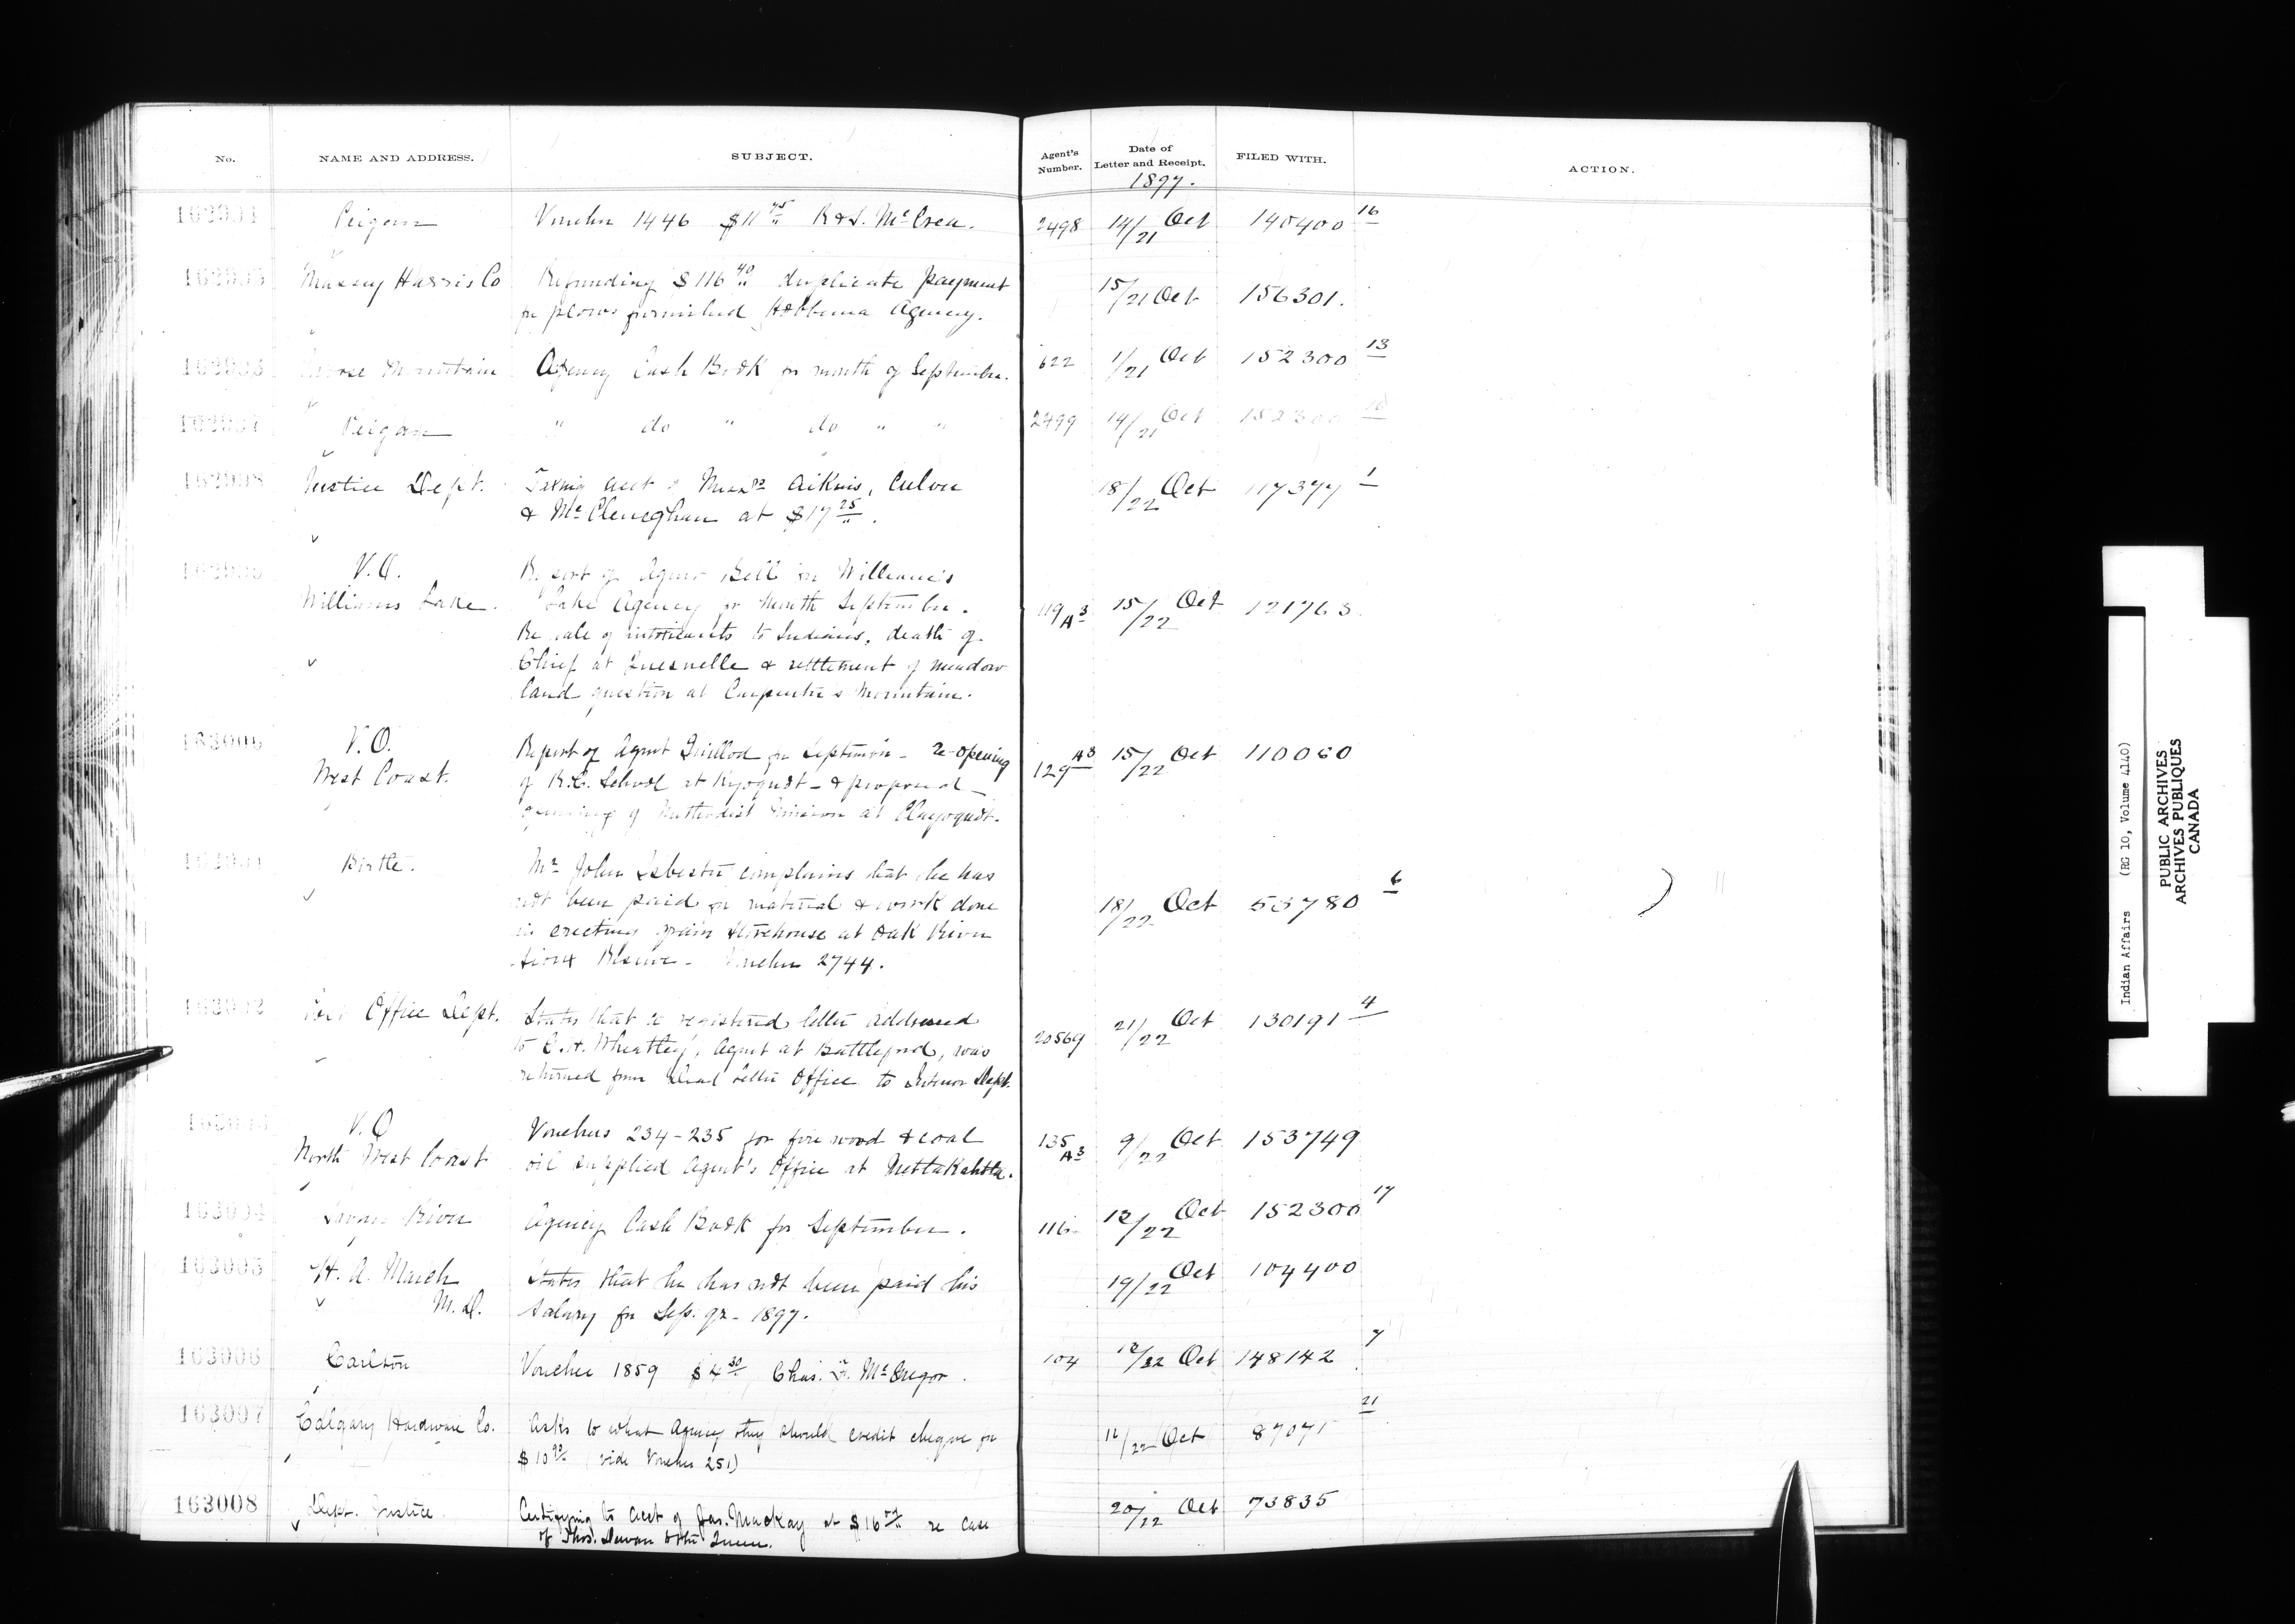 No. NAME AND ADDRESS. SUBJECT. Agent's Number. Date of Letter and Receipt. FILED WITH. ACTION.
1897.
Peigan Voucher 1446 $11 75 R & S. McCrea. 2498 14/21 Oct 140400 16
Massey Harris Co Refunding $116 40 duplicate payment 15/21 Oct 156301.
for plows furnished Hobbema Agency.
Moose Mountain Agency Cash Book for month of September. 622 1/21 Oct 152300 13
Peigan " do " do " " 2499 14/21 Oct 152300
Justice Dept. Taxing acct of Messrs Aikins, Culver 18/22 Oct 117377 1
& McCleneghan at $17 25.
V.O. Report of Agent Bell on William's
Williams Lake. Lake Agency for month September. 119 A3 15/22 Oct 121763
Re sale of intoxicants to Indians, death of
Chief at Quesnelle & settlement of meadow
land question at Carpenter's Mountain.
163000 V.O. Report of Agent Guillod for September - re-opening
West Coast. of R.C. School at Kyoquot - & proposed 129 A3 15/22 Oct 110060
opening of Methodist Mission at Clayoquot.
163001 Birtle. Mr John Isbester complains that he has
not been paid for material & work done 18/22 Oct 53780 6
in erecting grain storehouse at Oak River
Sioux Reserve - Voucher 2744.
163002 Post Office Dept. States that a registered letter addressed 21/22 Oct 130191 4
to C. M. Wheatley, Agent at Battleford, was 20569
returned from Dead Letter Office to Interior Dept.
V.O Vouchers 234-235 for fire wood & coal 135 A3 9/22 Oct 153749
North West Coast oil supplied Agent's Office at Metlakahtla.
163004 Swan River Agency Cash Book for September. 116 12/22 Oct 152300 17
163005 H. A. March States that he has not been paid his 19/22 Oct 104400
M.D. salary for Sep. qr - 1897.
163006 Carlton Voucher 1859 $4 30 Chas. F. McGregor. 104 12/22 Oct 148142 7
163007 Calgary Hardware Co. Asks to what Agency they should credit cheque for 12/22 Oct 87071 21
$10 90 (vide Voucher 251)
163008 Dept. Justice Certifying to acct of Jas. Mackay at $16 re case 20/22 Oct 73835
of Thos. vs the Queen.
Indian Affairs (RG 10, Volume 4140)
PUBLIC ARCHIVES
ARCHIVES PUBLIQUES
CANADA